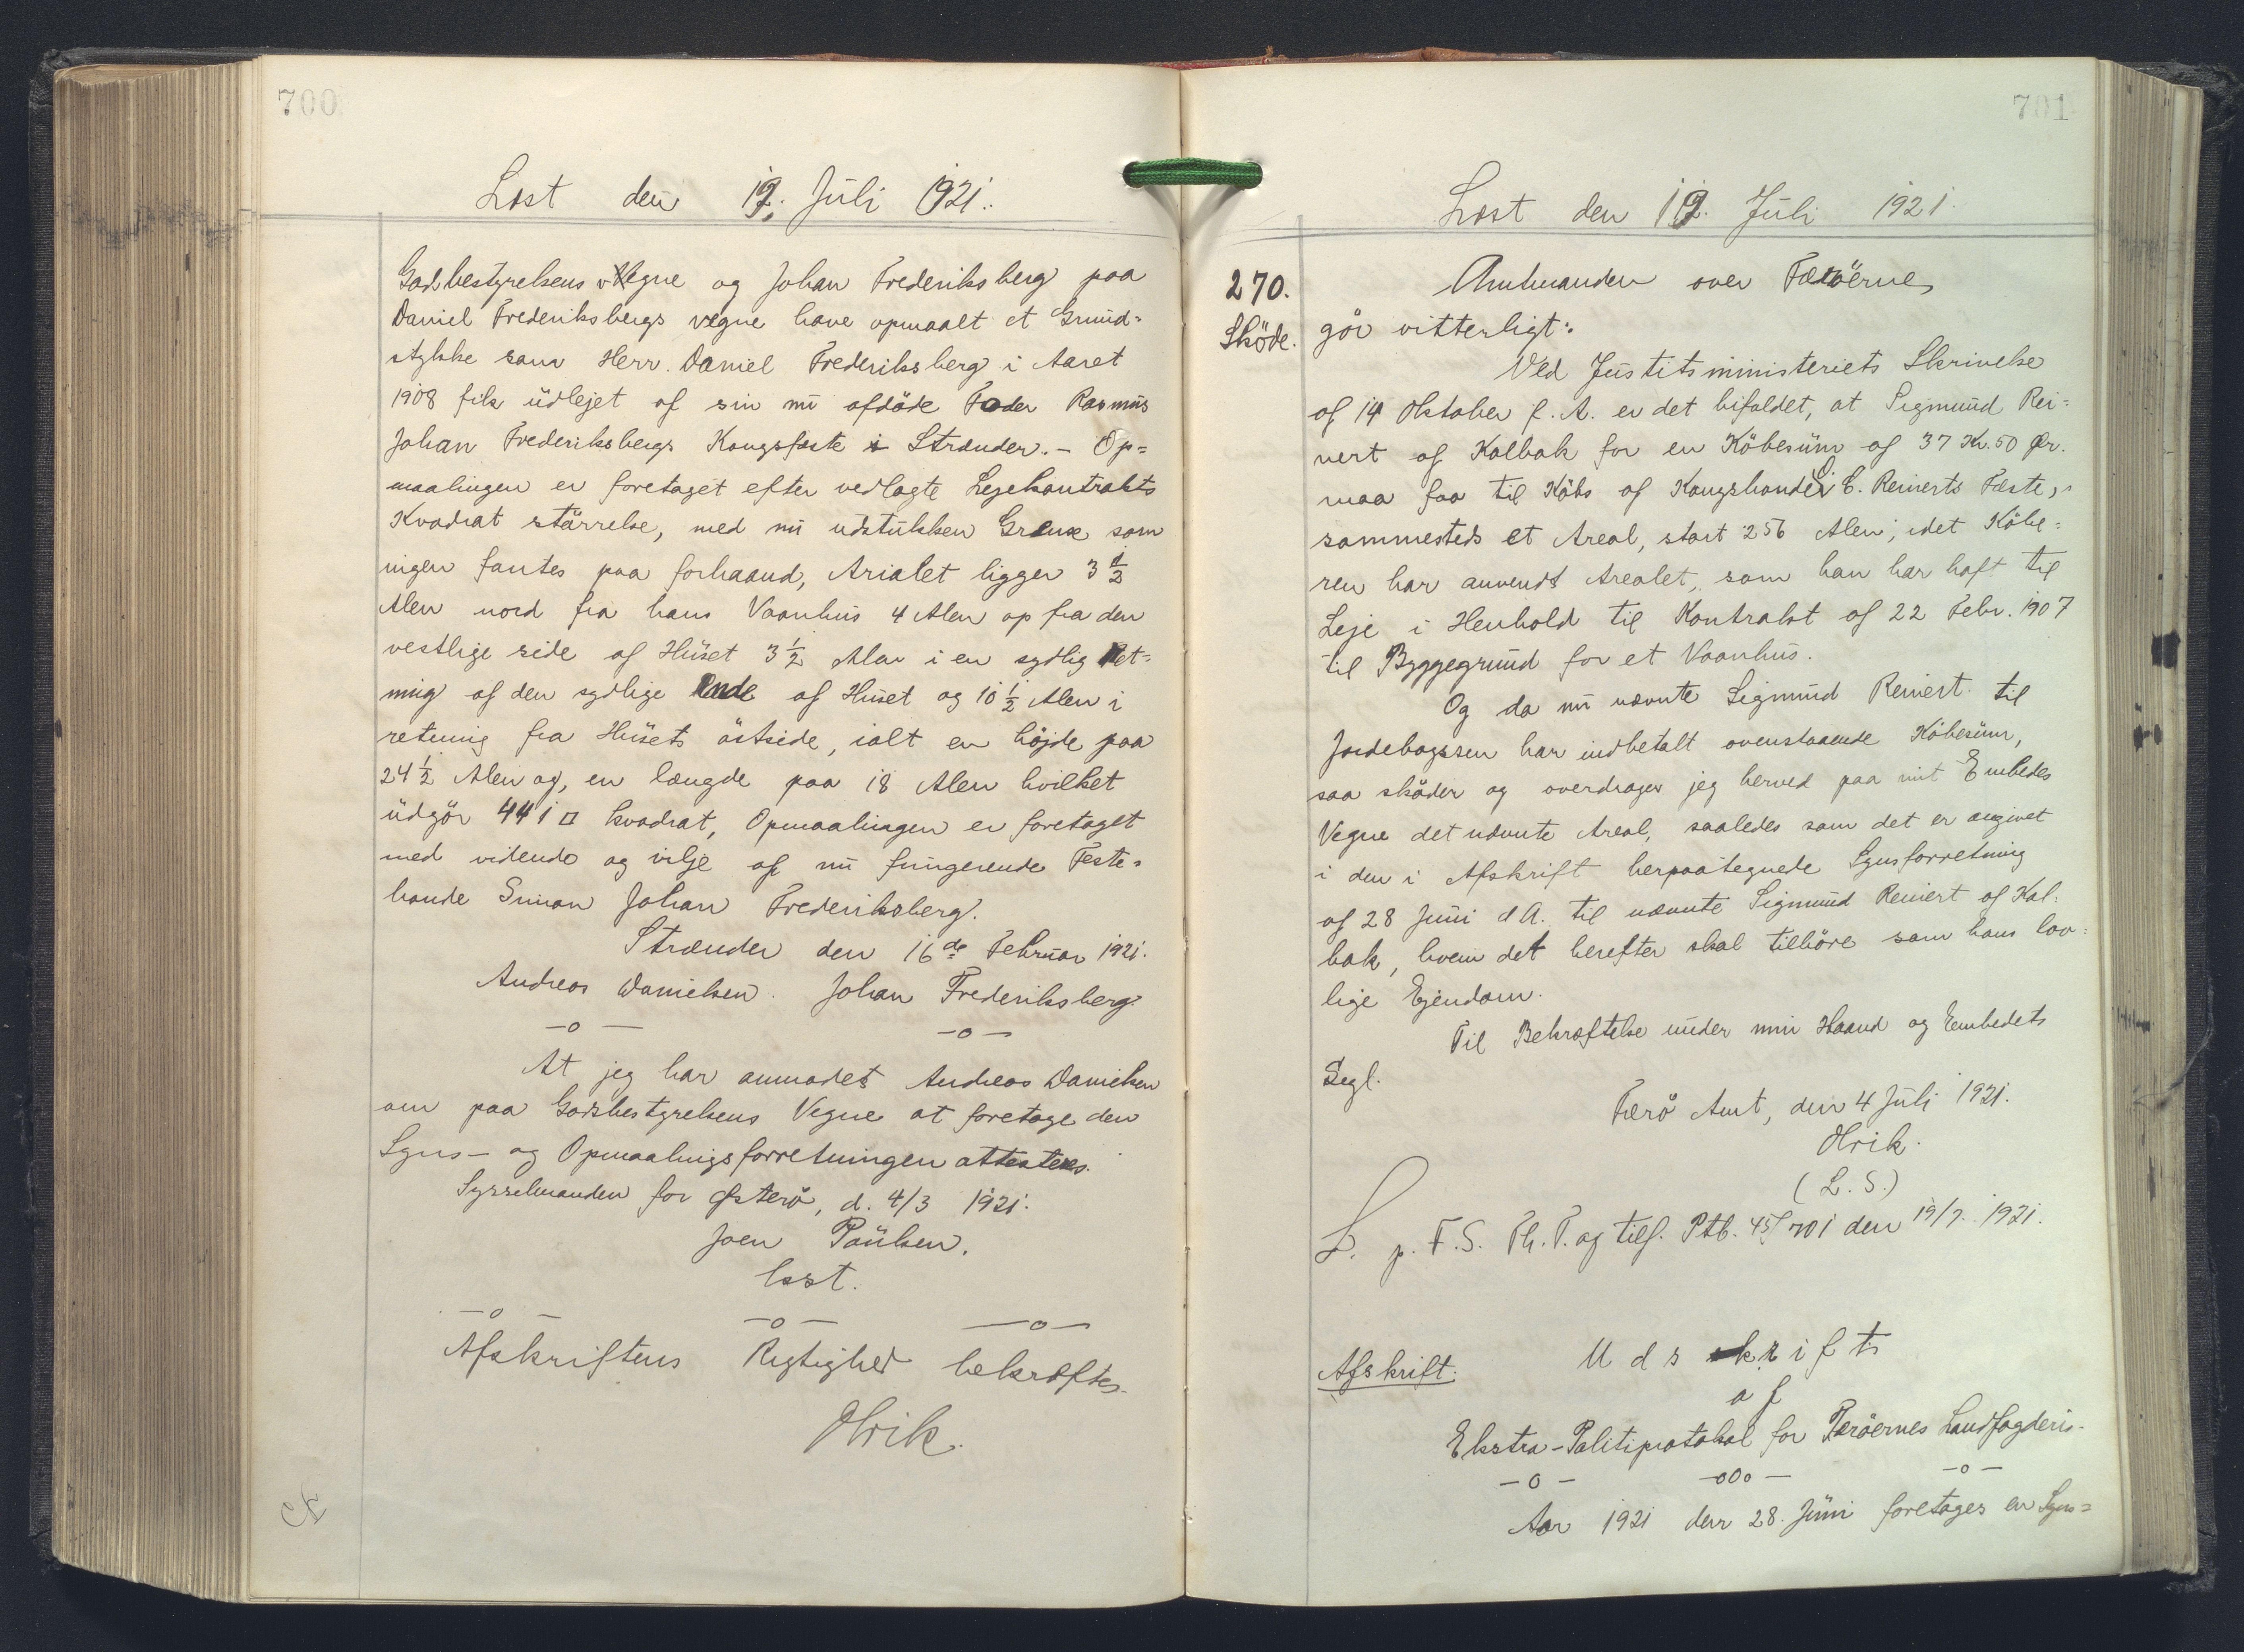 700
Læst den 19. Juli 1921.
Godsbestyrelsens Vegne og Johan Frederiksberg paa
Daniel Frederiksbergs vegne have opmaalt et Grund-
stykke som Herr. Daniel Frederiksberg i Aaret
1908 fik udlejet af sin nu afdöde Fader Rasmus
Johan Frederiksbergs Kongsfæste i Strænder. - Op-
maalingen er foretaget efter vedlagte Lejekontrakts
Kvadrat större­lse, med nu udstukken Grense som
ingen fantes paa forhaand, Arialet ligger 3 1/2
Alen nord fra hans Vaanhus 4 Alen op fra den
vestlige side af Huset 3 1/2 Alen i en sydlig Ret-
ning af den sydlige Ende af Huset og 10 1/2 Alen i
retning fra Husets östside, ialt en höjde paa
24 1/2 Alen og, en længde paa 18 Alen hvilket
udgör 441 □ kvadrat, Opmaalingen er foretaget
med vidende og vilje af nu fungerende Feste-
bonde Simon Johan Frederiksberg.
Strænder den 16de Februar 1921.
Andreas Danielsen. Johan Frederiksberg.
-o- -o-
At jeg har anmodet Andreas Danielsen
om paa Godsbestyrelsens Vegne at foretage den
Syns- og Opmaalingsforretningen attesteres.
Sysselmanden for Østerö, d. 4/3 1921.
Joen Poulsen.
kst.
-o- -o- -o-
Afskriftens Rigtighed bekræftes.
Olrik.
701
Læst den 19. Juli 1921.
270.
Sköde.
Amtmanden over Færöerne
gör vitterligt:
Ved Justitsministeriets Skrivelse
af 14 Oktober f. A. er det bifaldet, at Sigmund Rei-
nert af Kolbak for en Köbesum af 37 Kr. 50 Ør.
maa faa til Köbs af Kongsbonde C. Reinerts Fæste,
sammesteds et Areal, stort 256 Alen; idet Köbe-
ren har anvendt Arealet, som han har haft til
Leje i Henhold til Kontrakt af 22 Febr. 1907
til Byggegrund for et Vaanhus.
Og da nu nævnte Sigmund Reinert til
Jordebogssen har indbetalt ovenstaaende Köbesum,
saa sköder og overdrager jeg herved paa mit Embedes
Vegne det nævnte Areal, saaledes som det er angivet
i den i Afskrift herpaategnede Synsforretning
af 28 Juni d A. til nævnte Sigmund Reinert af Kol-
bak, hvem det herefter skal tilhöre som hans lov-
lige Ejendom.
Til Bekræftelse under min Haand og Embedets
Segl.
Færö Amt, den 4 Juli 1921.
Olrik.
(L. S.)
L. p. F. S. Th. T. og tilf. Ptb. 45/701 den 19/7. 1921.
Afskrift.
Udskrift
af
Ekstra-Politiprotokol for Færöernes Landfogderi.
-o- -o0o- -o-
Aar 1921 den 28. Juni foretages en Syns-